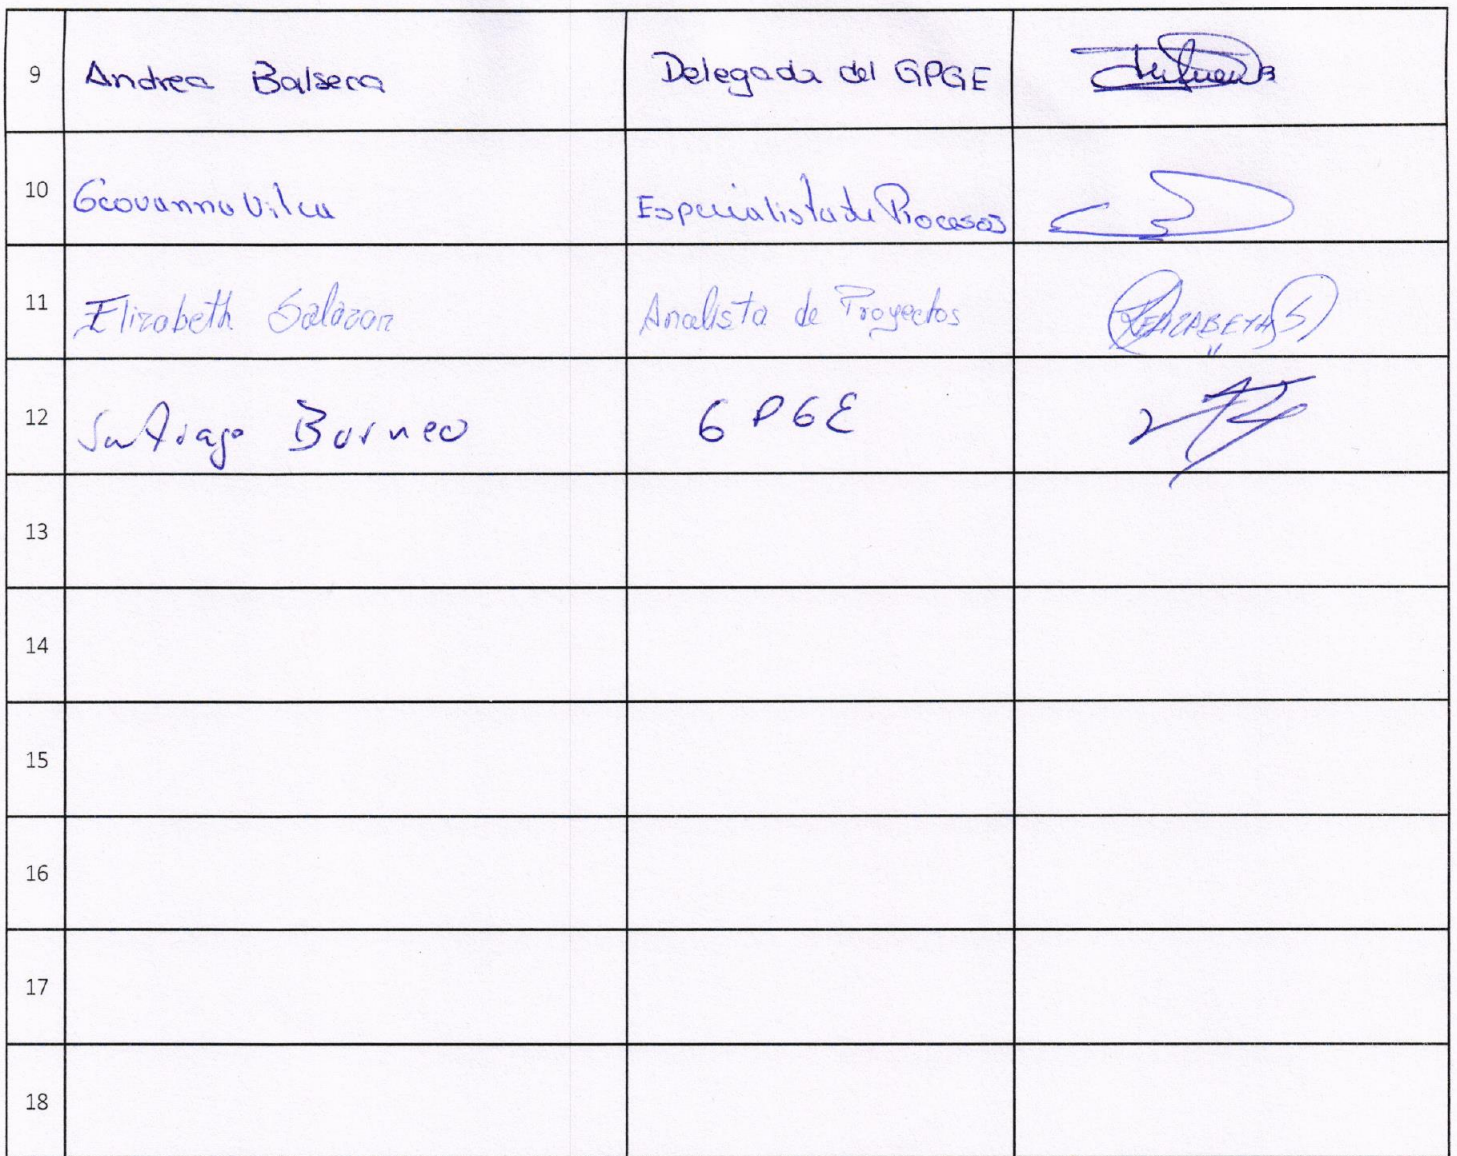 9 Andrea Balseca Delegada del GPGE
10 Geovanna Vilca Especialista de Procesos
11 Elizabeth Salazar Analista de Proyectos ELIZABETH S
12 Santiago Borneo GPGE
13
14
15
16
17
18